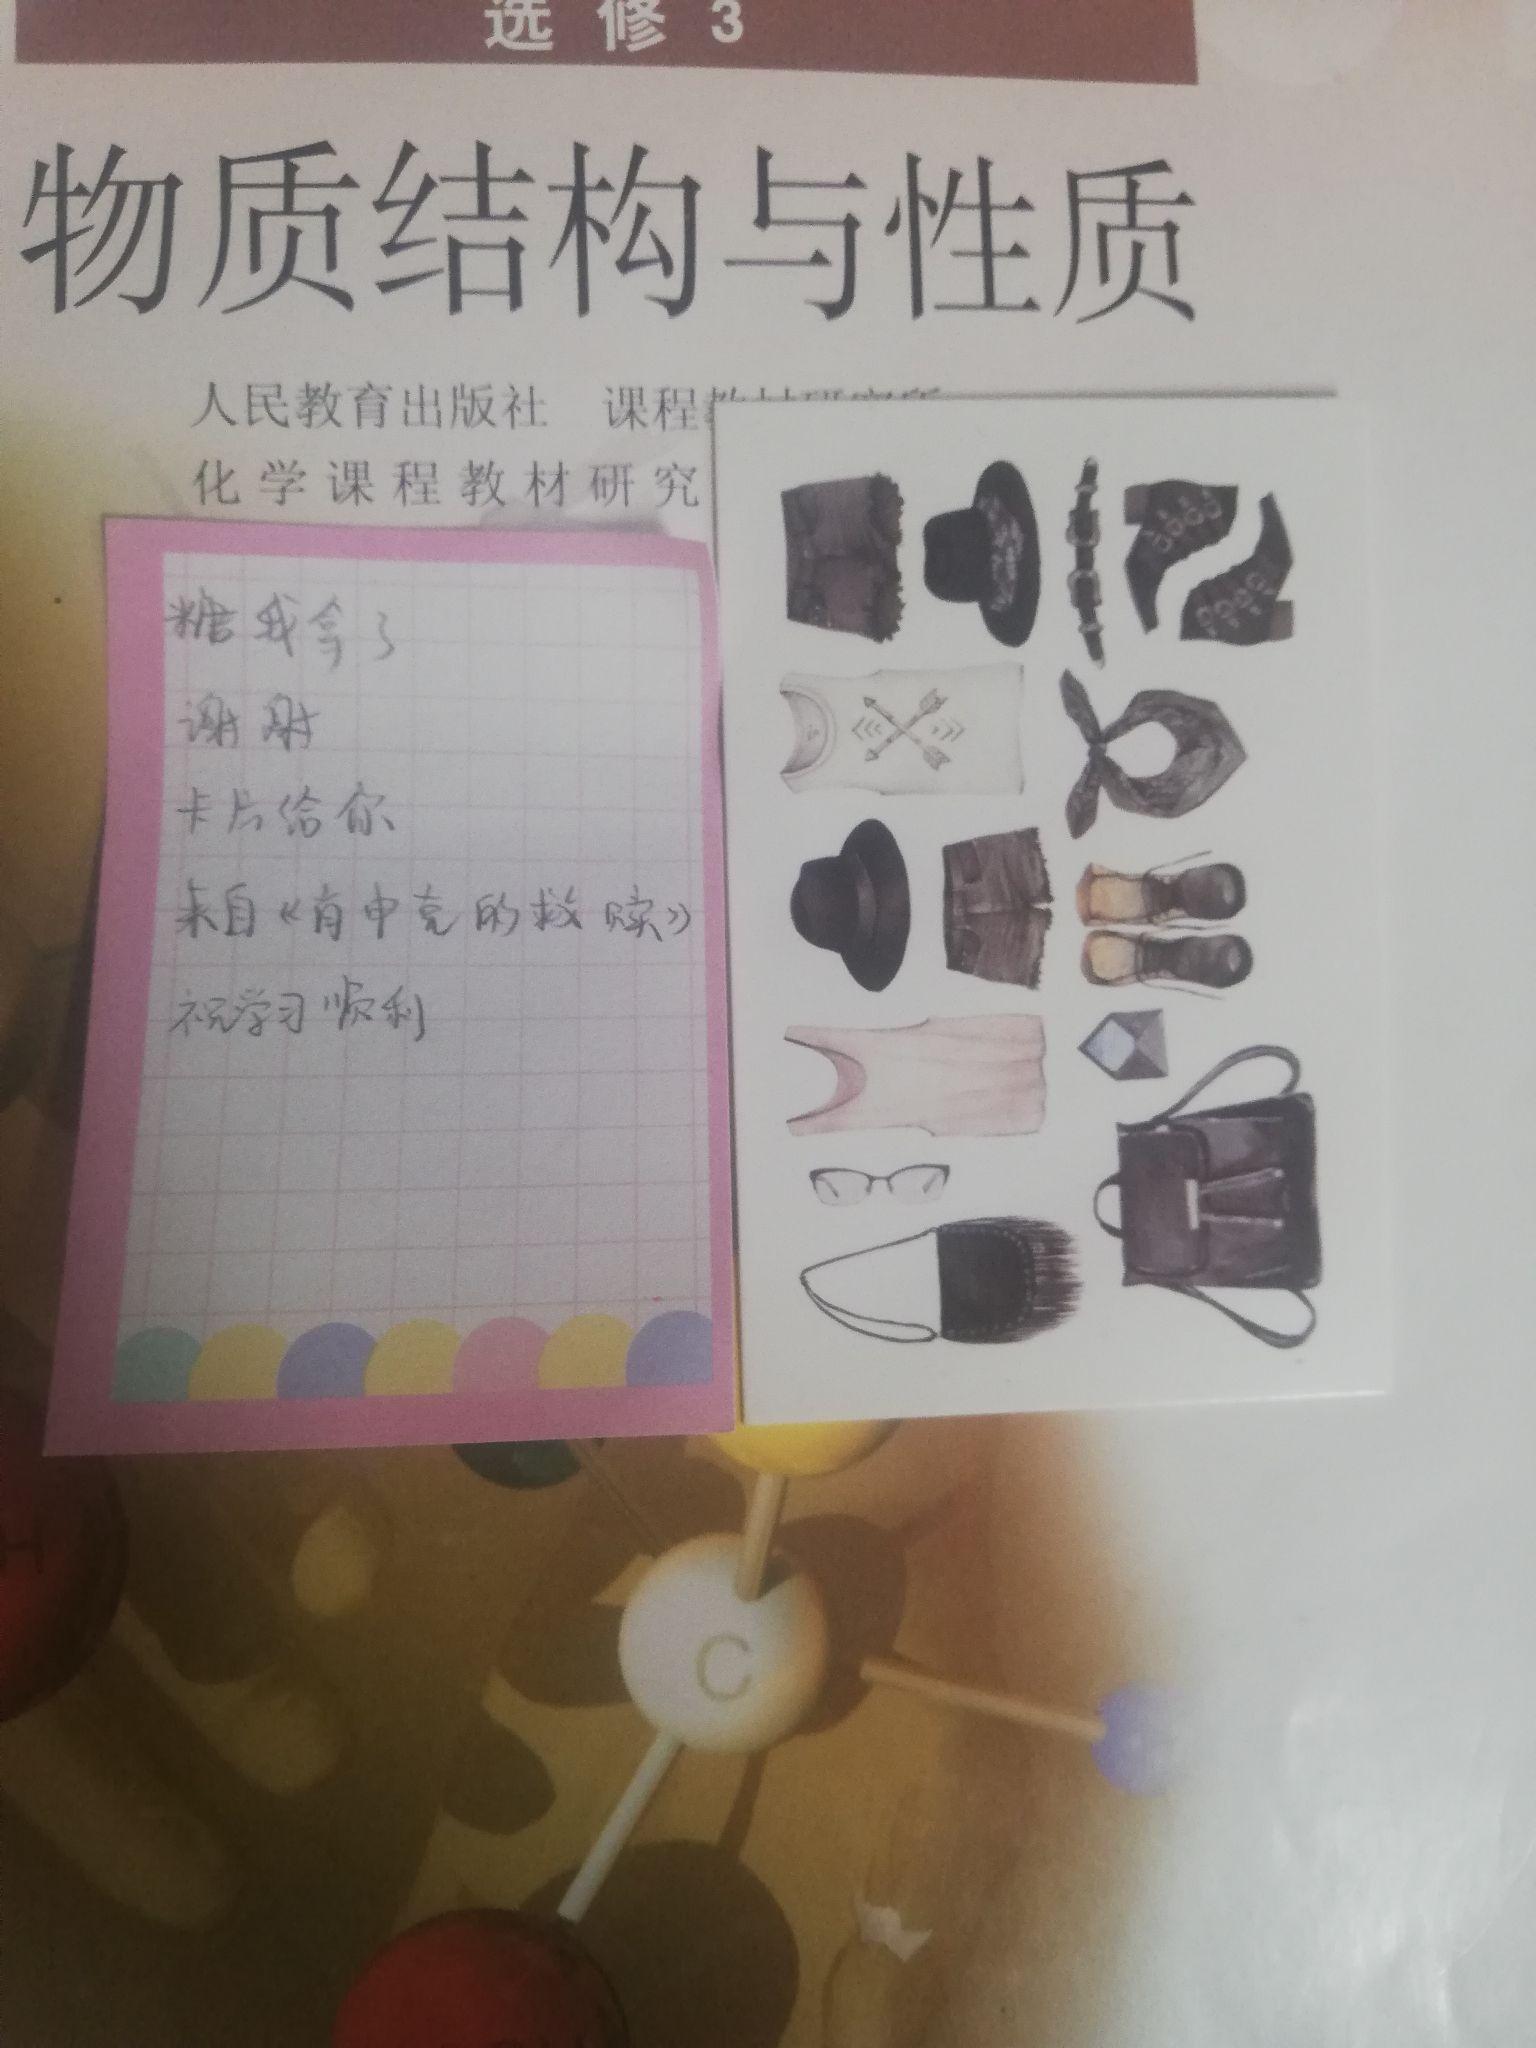 选修3
物质结构与性质
人民教育出版社 课程教材研究所
化学课程教材研究
糖我拿了
谢谢
卡片给你
来自《肖申克的救赎》
祝学习顺利
C